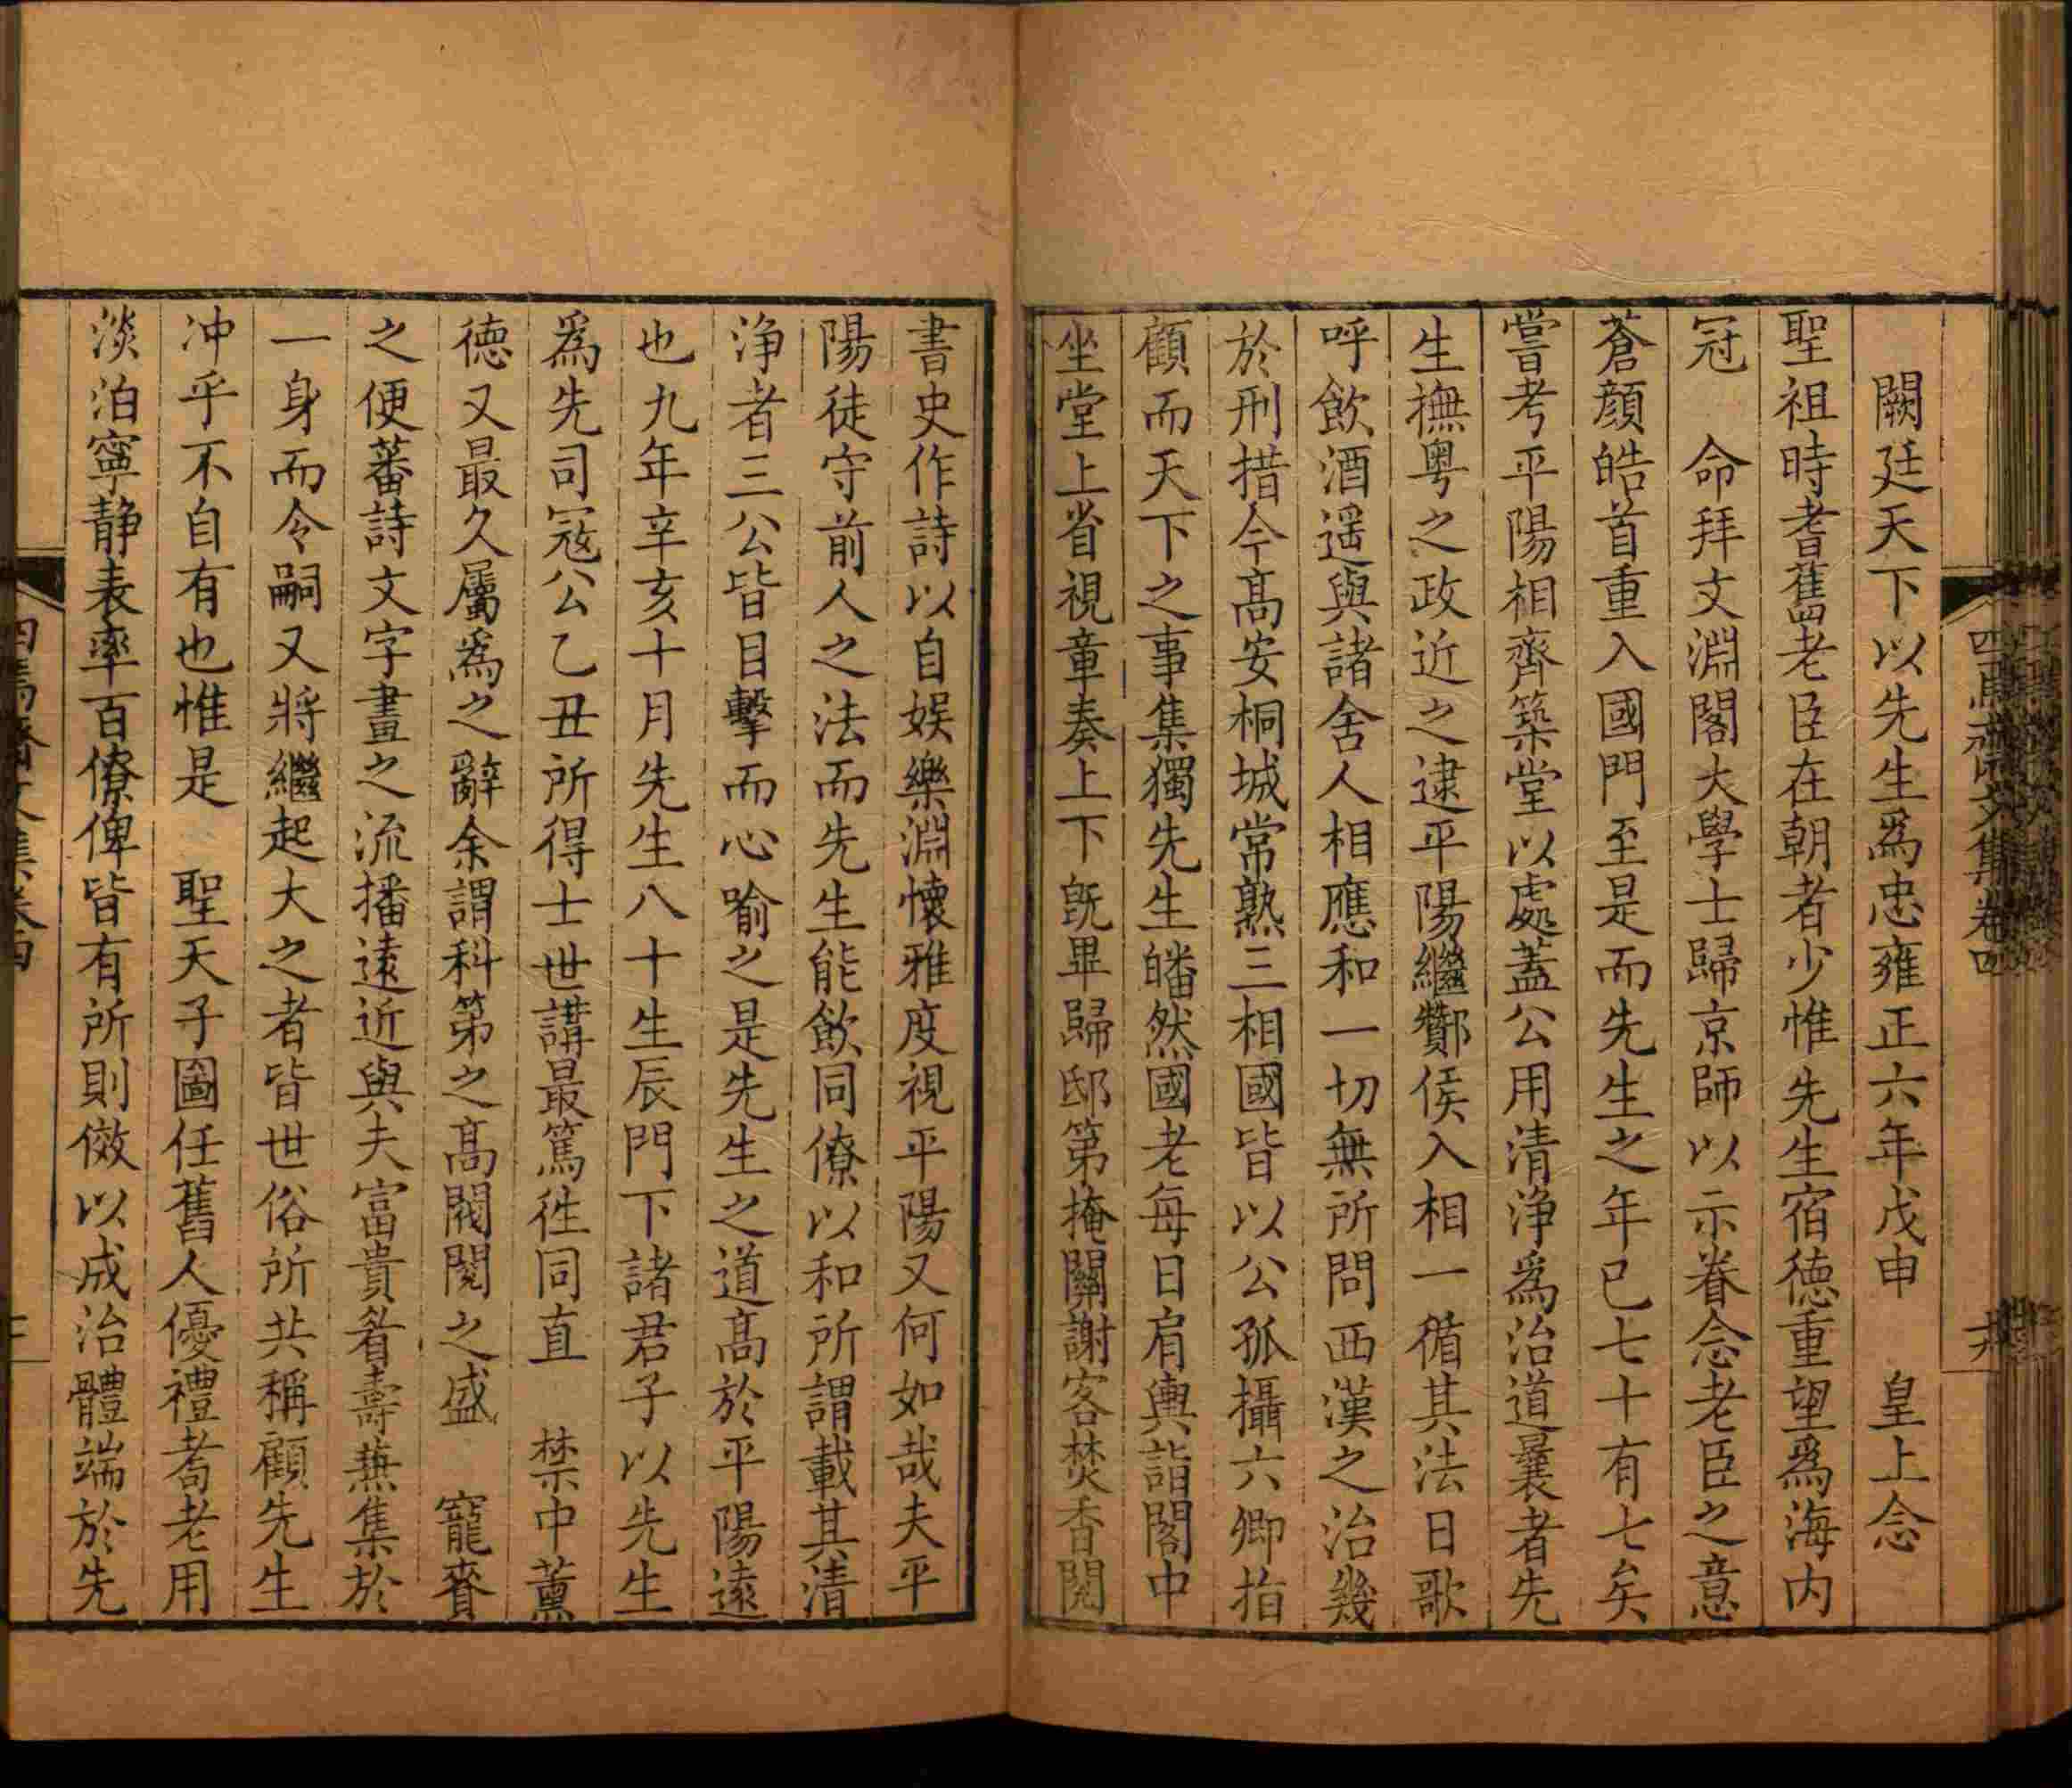 闕廷天下以先生爲忠雍正六年戊申　皇上念
聖祖時耆舊老臣在朝者少惟先生宿德重望爲海内
冠　命拜文淵閣大學士歸京師以示眷念老臣之意
蒼顔皓首重入國門至是而先生之年已七十有七矣
嘗考平陽相齊築堂以處蓋公用清浄爲治道曩者先
生撫粤之政近之逮平陽繼酇侯入相一循其法日歌
呼飲酒遥與諸舍人相應和一切無所問西漢之治幾
於刑措今髙安桐城常熟三相國皆以公孤攝六卿指
顧而天下之事集獨先生皤然國老每日肩輿詣閣中
坐堂上省視章奏上下旣畢歸邸第掩關謝客焚香閲
書史作詩以自娱樂淵懷雅度視平陽又何如哉夫平
陽徒守前人之法而先生能飲同僚以和所謂載其清
浄者三公皆目擊而心喻之是先生之道髙於平陽遠
也九年辛亥十月先生八十生辰門下諸君子以先生
爲先司寇公乙丑所得士世講最篤徃同直　禁中薰
德又最久屬爲之辭余謂科第之髙閥閲之盛　寵賚
之便蕃詩文字畫之流播遠近與夫富貴耆壽蕪集於
一身而令嗣又將繼起大之者皆世俗所共稱顧先生
冲乎不自有也惟是　聖天子圖任舊人優禮耈老用
淡泊寧静表率百僚俾皆有所則傚以成治體端於先
四焉齋文集卷四